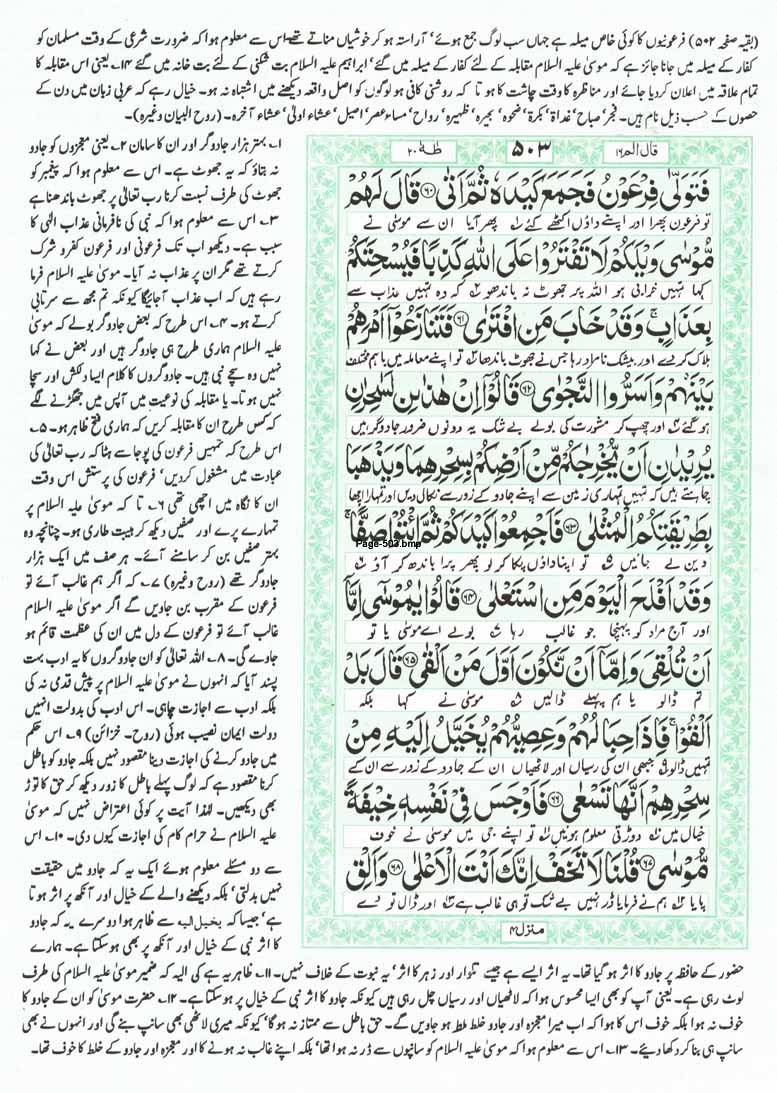 (بقیہ صفحہ ۵۰۲) فرعونیوں کا کوئی خاص میلہ ہے جہاں سب لوگ جمع ہوئے' آراستہ ہو کر خوشیاں مناتے تھے۔ اس سے معلوم ہوا کہ ضرورت شرعی کے وقت مسلمان کو
کفار کے میلہ میں جانا جائز ہے کہ موسیٰ علیہ السلام مقابلہ کے لئے کفار کے میلہ میں گئے' ابراہیم علیہ السلام بت شکنی کے لئے بت خانہ میں گئے ۱۴۔ یعنی اس مقابلہ کا
تمام علاقہ میں اعلان کردیا جائے اور مناظرہ کا وقت چاشت کا ہو تا کہ روشنی کافی ہو لوگوں کو اصل واقعہ دیکھنے میں اشتباہ نہ ہو۔ خیال رہے کہ عربی زبان میں دن کے
حصوں کے حسب ذیل نام ہیں۔ فجر' صباح' غداۃ' بکرۃ' ضحوہ' ہجیرہ' ظہیرہ' رواح' مساء' عصر' اصیل' عشاء اولیٰ' عشاء آخرہ۔ (روح البیان وغیرہ)۔
قال الم ۱۶
۵۰۳
طٰهٰ ۲۰
فَتَوَلّٰى فِرْعَوْنُ فَجَمَعَ كَيْدَهٗ ثُمَّ اَتٰى ﴿۶۰﴾ قَالَ لَهُمْ
تو فرعون پھرا اور اپنے داؤں اکٹھے کئے لہ پھر آیا ان سے موسیٰ نے
مُّوْسٰى وَيْلَكُمْ لَا تَفْتَرُوْا عَلَى اللّٰهِ كَذِبًا فَيُسْحِتَكُمْ
کہا تمہیں خرابی ہو اللہ پر جھوٹ نہ باندھو ۲ کہ وہ تمہیں عذاب سے
بِعَذَابٍ ۚ وَقَدْ خَابَ مَنِ افْتَرٰى ﴿۶۱﴾ فَتَنَازَعُوْٓا اَمْرَهُمْ
ہلاک کردے ۳ اور بیشک نامراد رہا جس نے جھوٹ باندھا تو اپنے معاملہ میں باہم مختلف
بَيْنَهُمْ وَاَسَرُّوا النَّجْوٰى ﴿۶۲﴾ قَالُوْٓا اِنْ هٰذٰىنِ لَسٰحِرٰنِ
ہو گئے ۴ اور چھپ کر مشورت کی بولے بے شک یہ دونوں ضرور جادوگر ہیں
يُرِيْدٰنِ اَنْ يُّخْرِجٰكُمْ مِّنْ اَرْضِكُمْ بِسِحْرِهِمَا وَيَذْهَبَا
چاہتے ہیں کہ تمہیں تمہاری زمین سے اپنے جادو کے زور سے نکال دیں اور تمہارا اچھا
بِطَرِيْقَتِكُمُ الْمُثْلٰى ﴿۶۳﴾ فَاَجْمِعُوْا كَيْدَكُمْ ثُمَّ ائْتُوْا صَفًّا ۚ
Page-503.bmp
دین لے جائیں ۵ تو اپنا داؤں پکا کر لو پھر پرا باندھ کر آؤ ۶
وَقَدْ اَفْلَحَ الْيَوْمَ مَنِ اسْتَعْلٰى ﴿۶۴﴾ قَالُوْا يٰمُوْسٰٓى اِمَّآ
اور آج مراد کو پہنچا جو غالب رہا ۷ بولے اے موسیٰ یا تو
اَنْ تُلْقِىَ وَاِمَّآ اَنْ نَّكُوْنَ اَوَّلَ مَنْ اَلْقٰى ﴿۶۵﴾ قَالَ بَلْ
تم ڈالو یا ہم پہلے ڈالیں ۸ موسیٰ نے کہا بلکہ
اَلْقُوْا ۚ فَاِذَا حِبَالُهُمْ وَعِصِيُّهُمْ يُخَيَّلُ اِلَيْهِ مِنْ
تمہیں ڈالو ۹ جبھی ان کی رسیاں اور لاٹھیاں ان کے جادو کے زور سے ان کے
سِحْرِهِمْ اَنَّهَا تَسْعٰى ﴿۶۶﴾ فَاَوْجَسَ فِىْ نَفْسِهٖ خِيْفَةً
خیال میں ۱۰ دوڑتی معلوم ہوئیں ۱۱ تو اپنے جی میں موسیٰ نے خوف
مُّوْسٰى ﴿۶۷﴾ قُلْنَا لَا تَخَفْ اِنَّكَ اَنْتَ الْاَعْلٰى ﴿۶۸﴾ وَاَلْقِ
پایا ۱۲ ہم نے فرمایا ڈر نہیں بے شک تو ہی غالب ہے ۱۳ اور ڈال تو دے
منزل ۴
۱۔ بہتر ہزار جادوگر اور ان کا سامان ۲۔ یعنی معجزوں کو جادو
نہ بتاؤ کہ یہ جھوٹ ہے۔ اس سے معلوم ہوا کہ پیغمبر کو
جھوٹ کی طرف نسبت کرنا رب تعالیٰ پر جھوٹ باندھنا ہے
۳۔ اس سے معلوم ہوا کہ نبی کی نافرمانی عذاب الٰہی کا
سبب ہے۔ دیکھو اب تک فرعونی اور فرعون کفر و شرک
کرتے تھے مگر ان پر عذاب نہ آیا۔ موسیٰ علیہ السلام فرما
رہے ہیں کہ اب عذاب آجائیگا کیونکہ تم مجھ سے سرتابی
کرتے ہو۔ ۴۔ اس طرح کہ بعض جادوگر بولے کہ موسیٰ
علیہ السلام ہماری طرح ہی جادوگر ہیں اور بعض نے کہا
نہیں وہ سچے نبی ہیں۔ جادوگروں کا کلام ایسا دلکش اور سچا
نہیں ہوتا۔ یا مقابلہ کی نوعیت میں آپس میں جھگڑنے لگے
کہ کس طرح ان کا مقابلہ کریں کہ ہماری فتح ظاہر ہو۔ ۵۔
اس طرح کہ تمہیں فرعون کی پوجا سے ہٹا کہ رب تعالیٰ کی
عبادت میں مشغول کردیں' فرعون کی پرستش اس وقت
ان کا نگاہ میں اچھی تھی ۶۔ تا کہ موسیٰ علیہ السلام پر
تمہارے پرے اور صفیں دیکھ کر ہیبت طاری ہو۔ چنانچہ وہ
بہتر صفیں بن کر سامنے آئے۔ ہر صف میں ایک ہزار
جادوگر تھے (روح وغیرہ) ۷۔ کہ اگر ہم غالب آئے تو
فرعون کے مقرب بن جادیں گے اگر موسیٰ علیہ السلام
غالب آئے تو فرعون کے دل میں ان کی عظمت قائم ہو
جاوے گی۔ ۸۔ اللہ تعالیٰ کو ان جادوگروں کا یہ ادب بہت
پسند آیا کہ انہوں نے موسیٰ علیہ السلام پر پیش قدمی نہ کی
بلکہ ادب سے اجازت چاہی۔ اس ادب کی بدولت انہیں
دولت ایمان نصیب ہوئی (روح۔ خزائن) ۹۔ اس حکم
میں جادو کرنے کی اجازت دینا مقصود نہیں بلکہ جادو کو باطل
کرنا مقصود ہے کہ لوگ پہلے باطل کا زور دیکھ کر حق کا توڑ
بھی دیکھیں۔ لہٰذا آیت پر کوئی اعتراض نہیں کہ موسیٰ
علیہ السلام نے حرام کام کی اجازت کیوں دی۔ ۱۰۔ اس
سے دو مسئلے معلوم ہوئے ایک یہ کہ جادو میں حقیقت
نہیں بدلتی' بلکہ دیکھنے والے کے خیال اور آنکھ پر اثر ہوتا
ہے' جیسا کہ یخیل الیہ سے ظاہر ہوا دوسرے یہ کہ جادو
کا اثر نبی کے خیال اور آنکھ پر بھی ہو سکتا ہے۔ ہمارے
حضور کے حافظہ پر جادو کا اثر ہو گیا تھا۔ یہ اثر ایسے ہے جیسے تلوار اور زہر کا اثر' یہ نبوت کے خلاف نہیں۔ ۱۱۔ ظاہر یہ ہے کی الیہ کہ ضمیر موسیٰ علیہ السلام کی طرف
لوٹ رہی ہے۔ یعنی آپ کو بھی ایسا محسوس ہوا کہ لاٹھیاں اور رسیاں چل رہی ہیں کیونکہ جادو کا اثر نبی کے خیال پر ہو سکتا ہے۔ ۱۲۔ حضرت موسیٰ کو ان کے جادو کا
خوف نہ ہوا بلکہ خوف اس کا ہوا کہ اب میرا معجزہ اور جادو خلط ملط ہو جاویں گے۔ حق باطل سے ممتاز نہ ہو گا' کیونکہ میری لاٹھی بھی سانپ بنے گی اور انہوں نے بھی
سانپ ہی بنا کر دکھا دیئے۔ ۱۳۔ اس سے معلوم ہوا کہ موسیٰ علیہ السلام کو سانپوں سے ڈر نہ ہوا تھا' بلکہ اپنے غالب نہ ہونے کا اور معجزہ اور جادو کے خلط کا خوف تھا۔